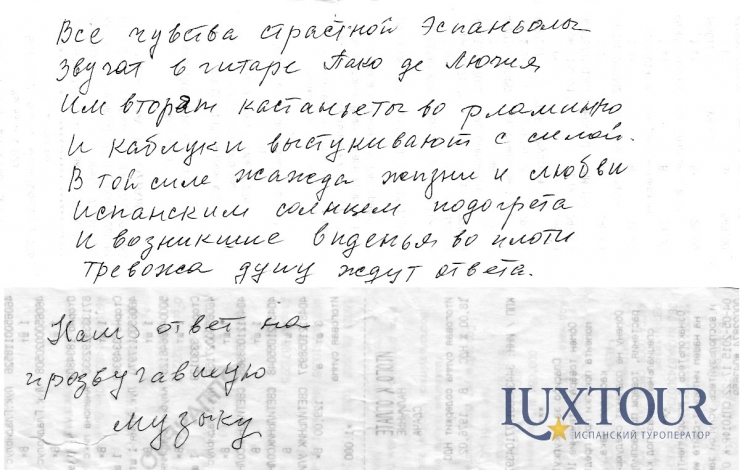 Все чувства страстной Эспаньолы
Звучат в гитаре Пако де Лючия
Им вторят кастаньеты во фламинго
И каблуки выстукивают с силой.
В той силе жажда жизни и любви
Испанским солнцем подогрета
И возникшие виденья во плоти
Тревожа душу ждут ответа.
Наш ответ на
прозвучавшую
музыку
LUXTOUR
ИСПАНСКИЙ ТУРОПЕРАТОР